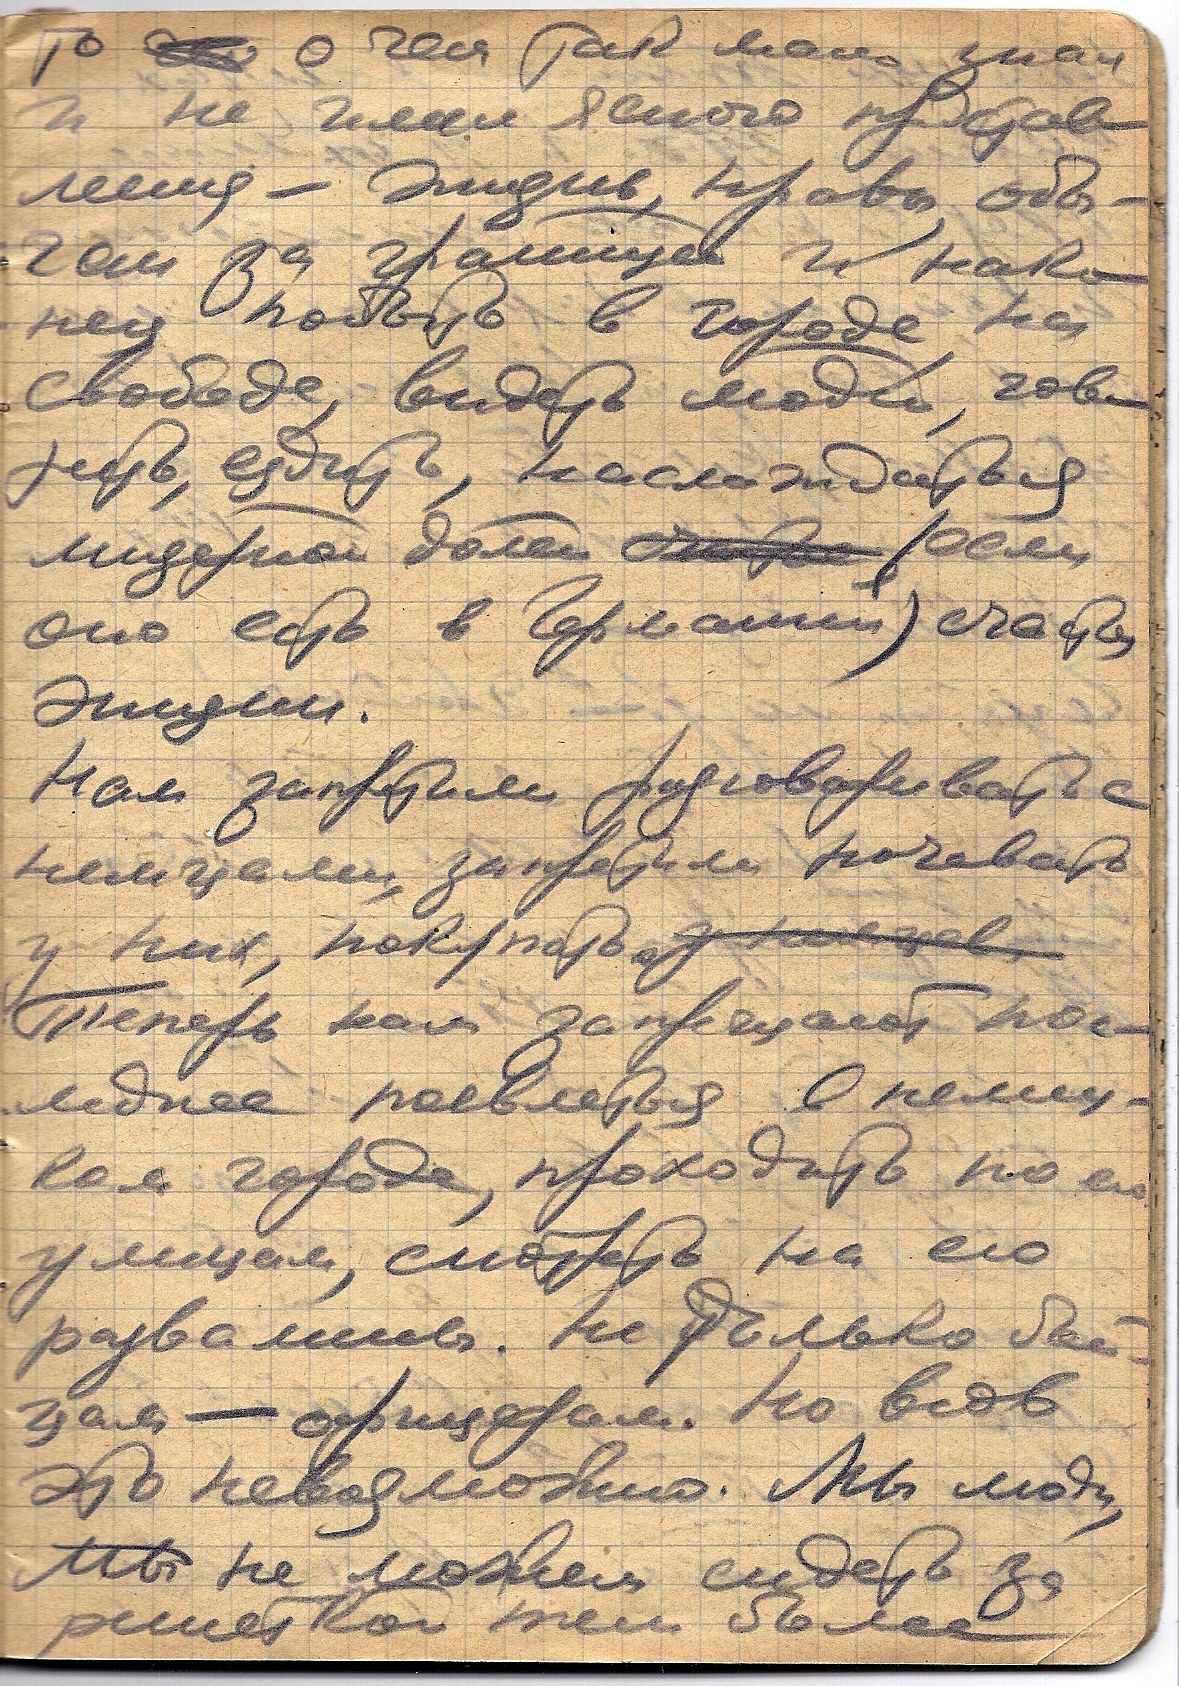 то о чем так мало знал
и не имел ясного представ-
ления – жизнь, нравы, обы-
чаи за границей и нако-
нец побыть в городе, на
свободе, видеть людей, гово-
рить, ездить, наслаждаться
мизерной долей (если
оно есть в Германии) счастья
жизни.
Нам запретили разговаривать с
немцами, запретили ночевать
у них, покупать у немцев
Теперь нам запрещают пос-
леднее появляться в немец-
ком городе, проходить по его
улицам, смотреть на его
развалины. Не только бой-
цам – офицерам. Но ведь
это невозможно. Мы люди,
мы не можем сидеть за
решеткой тем более